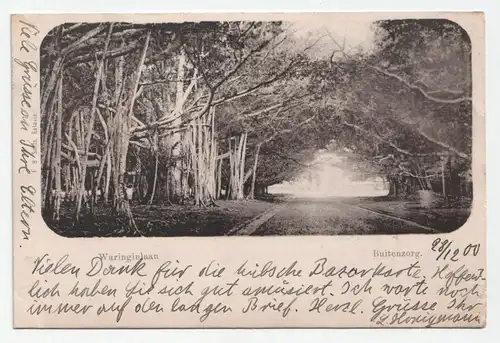 Viele Grüsse an Ihre Eltern
Waringinlaan
Buitenzorg.
28/12 00
Vielen Dank für die hübsche Bazarkarte. Hoffent
lich haben Sie sich gut amüsiert. Ich warte noch
immer auf den langen Brief. Herzl. Grüsse Ihr
L. Honigmann